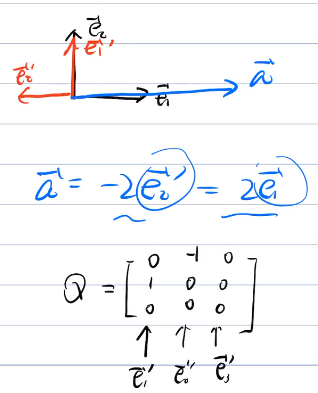 e⃗₂
e⃗₁'
e⃗₂' e⃗₁ a⃗
a⃗ = -2e⃗₂' = 2e⃗₁
Q = [ 0 -1 0
1 0 0
0 0 0 ]
↑ ↑ ↑
e⃗₁' e⃗₂' e⃗₃'